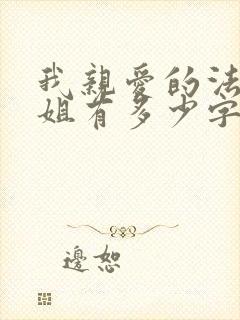 我親愛的法
姐有多少字
邊恕